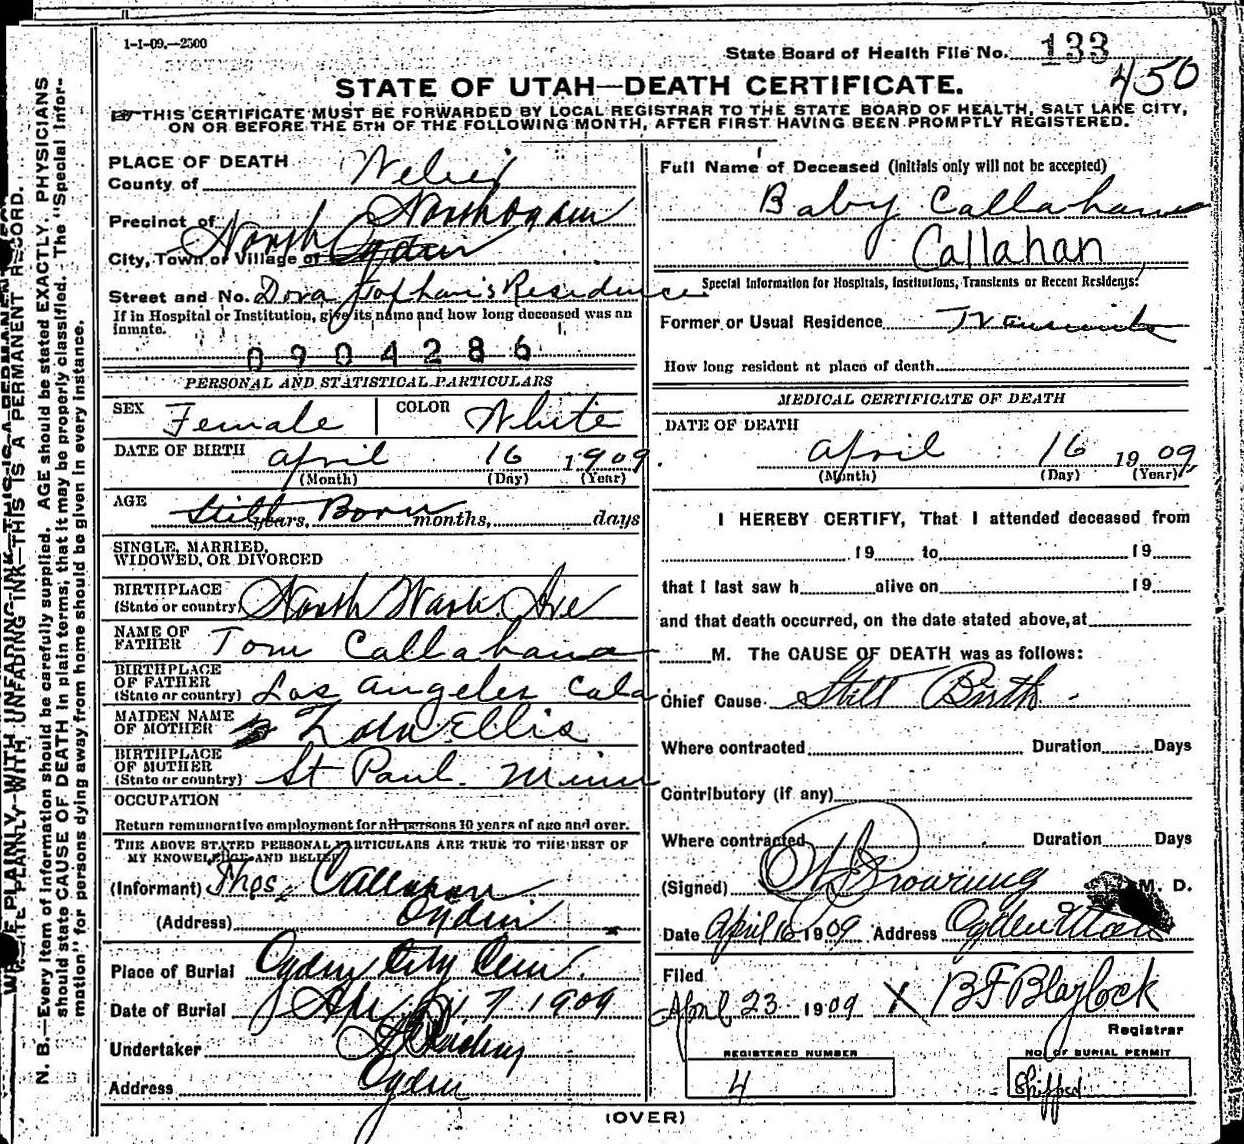 1-1-09.—2500
State Board of Health File No. 133
450
STATE OF UTAH—DEATH CERTIFICATE.
THIS CERTIFICATE MUST BE FORWARDED BY LOCAL REGISTRAR TO THE STATE BOARD OF HEALTH, SALT LAKE CITY,
ON OR BEFORE THE 5TH OF THE FOLLOWING MONTH, AFTER FIRST HAVING BEEN PROMPTLY REGISTERED.
PLACE OF DEATH
County of Weber
Precinct of North Ogden
City, Town or Village of North Ogden
Street and No. Dora Residence
If in Hospital or Institution, give its name and how long deceased was an
inmate.
0904286
PERSONAL AND STATISTICAL PARTICULARS
SEX Female COLOR White
DATE OF BIRTH April 16 1909.
(Month) (Day) (Year)
AGE Still Born years, months, days
SINGLE, MARRIED,
WIDOWED, OR DIVORCED
BIRTHPLACE
(State or country) North Wash. Ave
NAME OF
FATHER Tom Callahan
BIRTHPLACE
OF FATHER
(State or country) Los Angeles Cala
MAIDEN NAME
OF MOTHER Ellis
BIRTHPLACE
OF MOTHER
(State or country) St Paul. Minn
OCCUPATION
Return remunerative employment for all persons 10 years of age and over.
THE ABOVE STATED PERSONAL PARTICULARS ARE TRUE TO THE BEST OF
MY KNOWLEDGE AND BELIEF
(Informant) Thos. Callahan
(Address) Ogden
Place of Burial Ogden City Cem.
Date of Burial Apr. 17 1909
Undertaker
Address Ogden
Full Name of Deceased (Initials only will not be accepted)
Baby Callahan
Callahan
Special Information for Hospitals, Institutions, Transients or Recent Residents:
Former or Usual Residence
How long resident at place of death
MEDICAL CERTIFICATE OF DEATH
DATE OF DEATH
April 16 1909
(Month) (Day) (Year)
I HEREBY CERTIFY, That I attended deceased from
19 to 19
that I last saw h alive on 19
and that death occurred, on the date stated above, at
M. The CAUSE OF DEATH was as follows:
Chief Cause Still Birth
Where contracted Duration Days
Contributory (if any)
Where contracted Duration Days
(Signed) Browning M. D.
Date April 16 1909 Address Ogden Utah
Filed
April 23 1909 X B F Blaylock
Registrar
REGISTERED NUMBER
4
NO. OF BURIAL PERMIT
Shipped
(OVER)
WRITE PLAINLY WITH UNFADING INK—THIS IS A PERMANENT RECORD.
N. B.—Every item of information should be carefully supplied. AGE should be stated EXACTLY. PHYSICIANS
should state CAUSE OF DEATH in plain terms, that it may be properly classified. The "Special Infor-
mation" for persons dying away from home should be given in every instance.